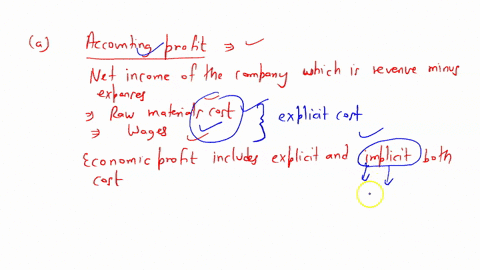 (a) Accounting profit ⇒
Net income of the company which is revenue minus
expenses
⇒ Raw materials cost
⇒ Wages
explicit cost
Economic profit includes explicit and implicit both
cost